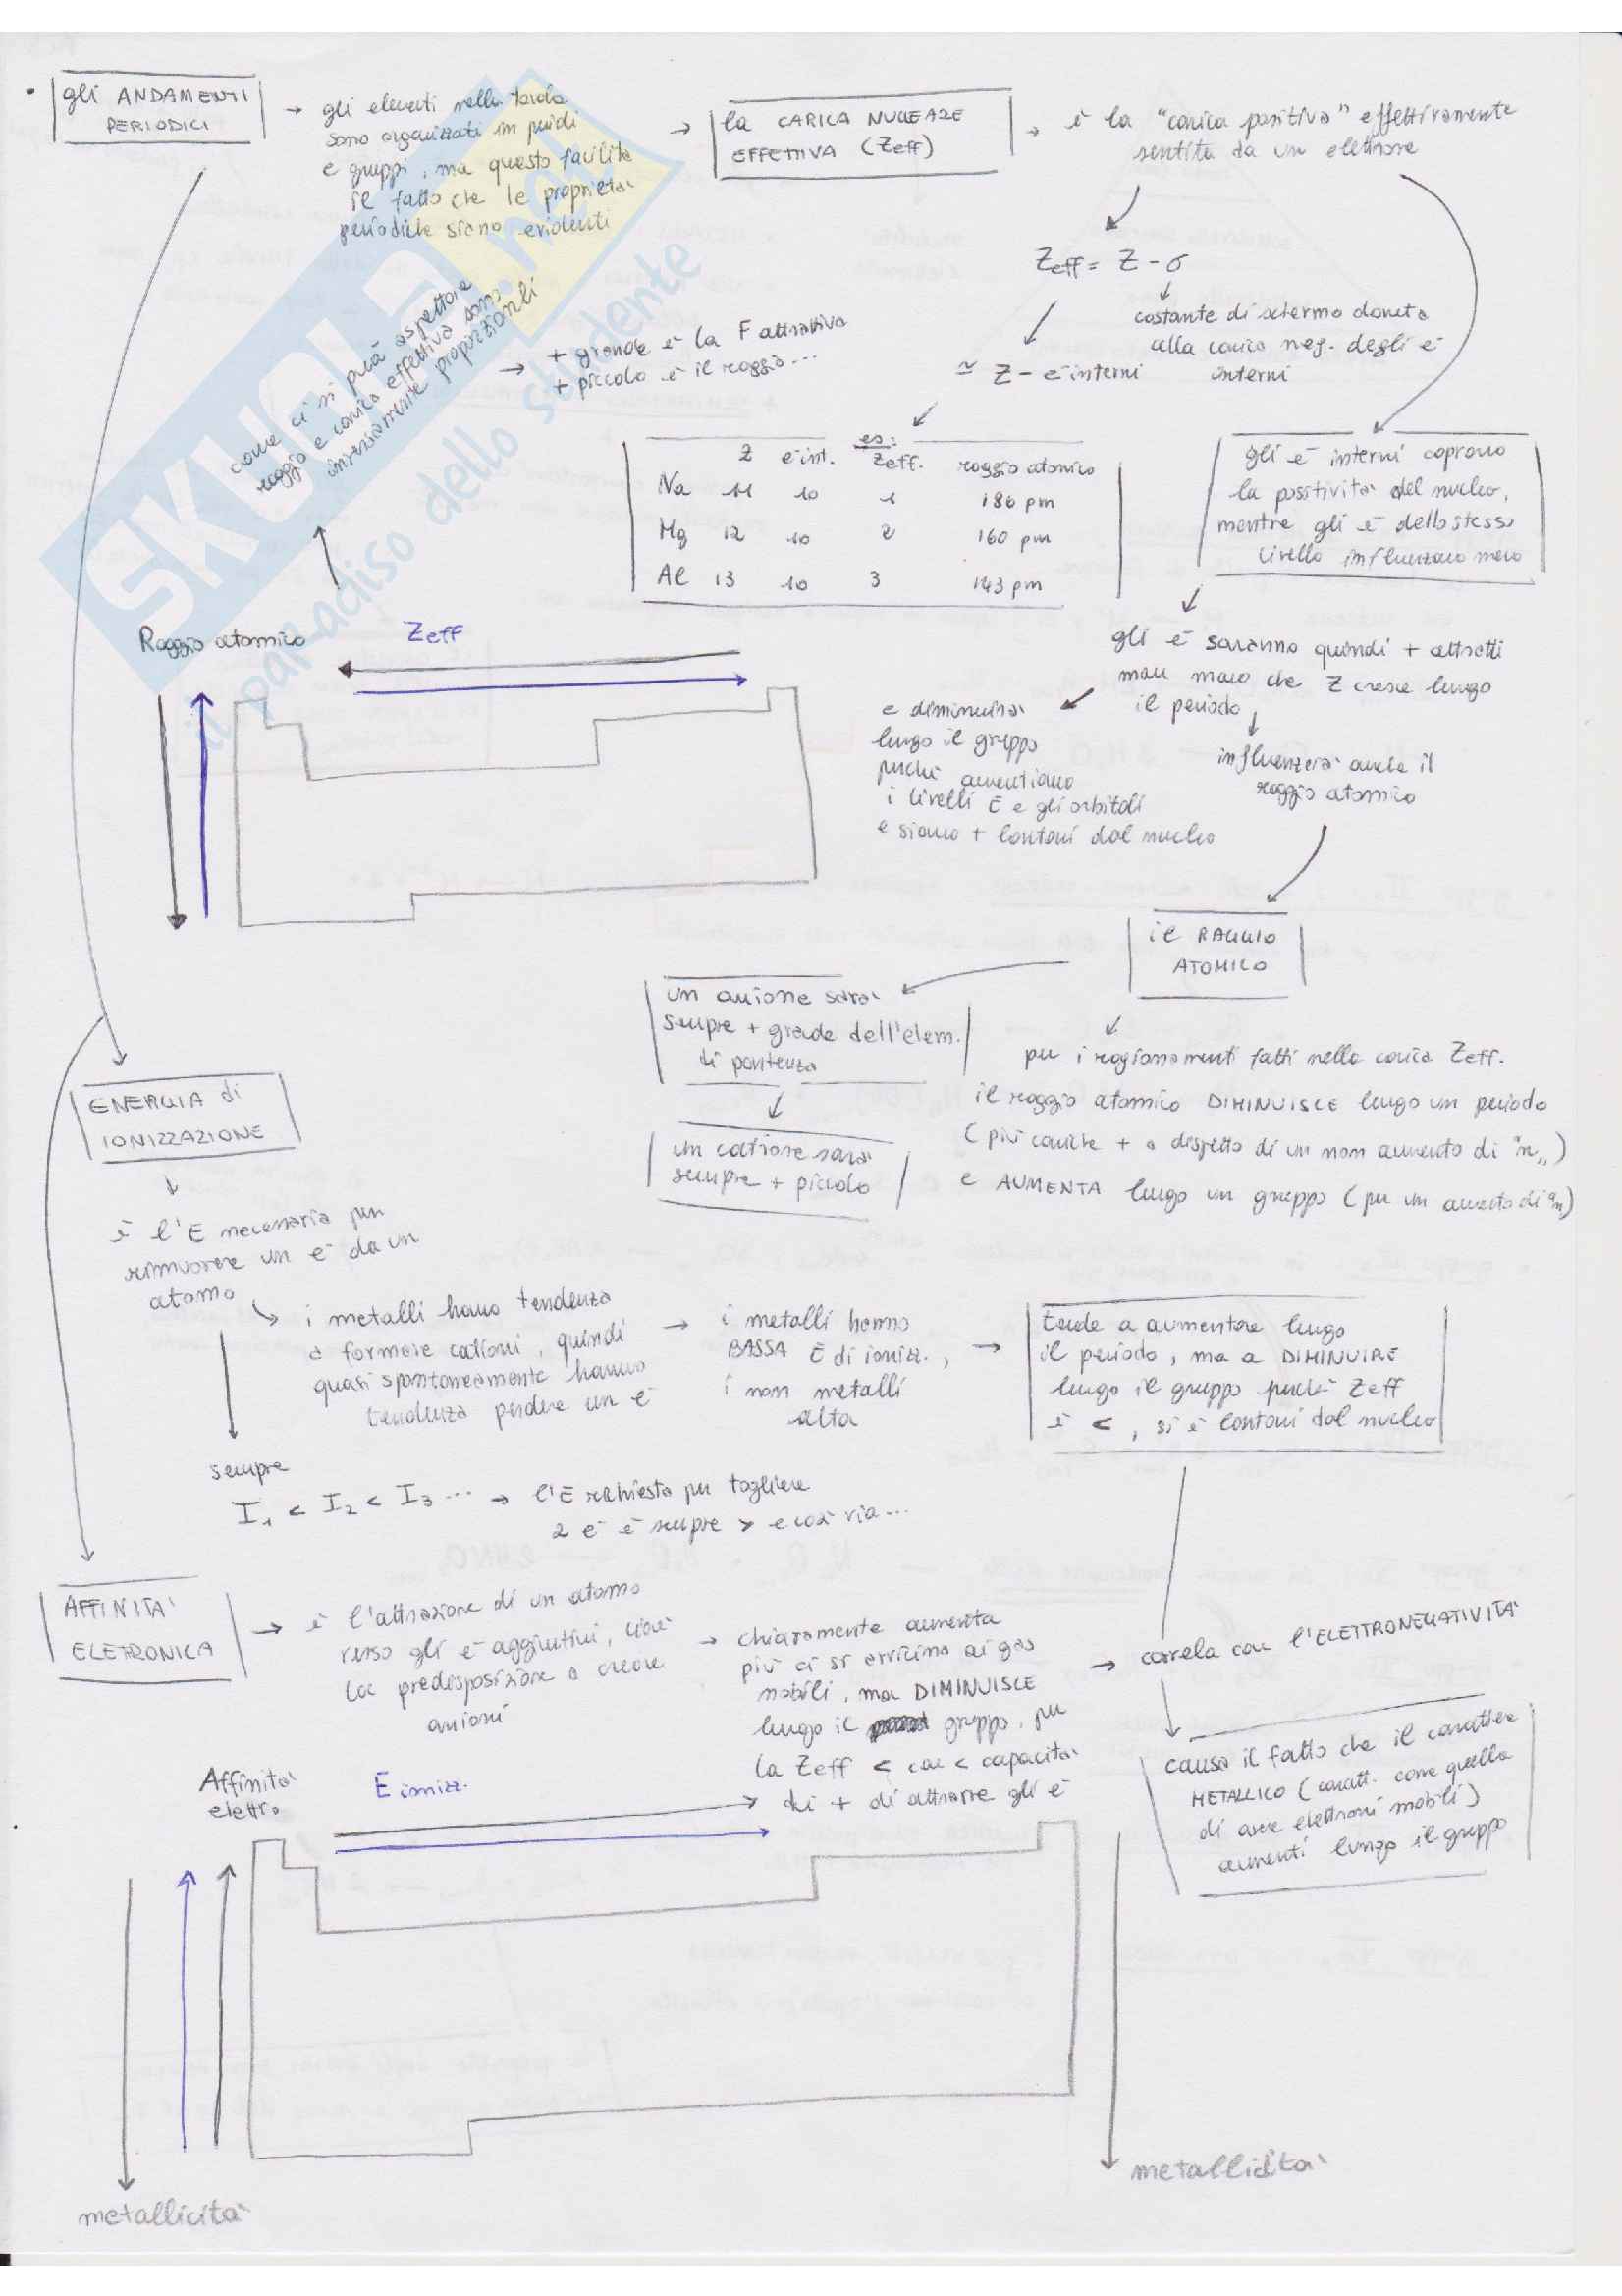 gli ANDAMENTI
PERIODICI
→ gli elementi nella tavola
sono organizzati in periodi
e gruppi, ma questo facilita
il fatto che le proprietà
periodiche siano evidenti
→ la CARICA NUCLEARE
EFFETTIVA (Zeff)
→ è la "carica positiva" effettivamente
sentita da un elettrone
Zeff = Z - σ
costante di schermo dovuta
alla carica neg. degli e⁻
interni
≃ Z - e⁻ interni
come ci si può aspettare
raggio e carica effettiva sono
inversamente proporzionali
→ + grande è la F attrattiva
+ piccolo è il raggio...
es:
Z e⁻ int. Zeff. raggio atomico
Na 11 10 1 186 pm
Mg 12 10 2 160 pm
Al 13 10 3 143 pm
gli e⁻ interni coprono
la positività del nucleo,
mentre gli e⁻ dello stesso
livello influenzano meno
gli e⁻ saranno quindi + attratti
man mano che Z cresce lungo
il periodo
e diminuirà
lungo il gruppo
perché aumentiamo
i livelli E e gli orbitali
e siamo + lontani dal nucleo
influenzerà anche il
raggio atomico
Raggio atomico
Zeff
il RAGGIO
ATOMICO
un anione sarà
sempre + grande dell'elem.
di partenza
un catione sarà
sempre + piccolo
per i ragionamenti fatti nella carica Zeff.
il raggio atomico DIMINUISCE lungo un periodo
(più cariche + a dispetto di un non aumento di "n")
e AUMENTA lungo un gruppo (per un aumento di "n")
ENERGIA di
IONIZZAZIONE
è l'E necessaria per
rimuovere un e⁻ da un
atomo
i metalli hanno tendenza
a formare cationi, quindi
quasi spontaneamente hanno
tendenza perdere un e⁻
→ i metalli hanno
BASSA E di ionizz.,
i non metalli
alta
→ tende a aumentare lungo
il periodo, ma a DIMINUIRE
lungo il gruppo perché Zeff
è <, si è lontani dal nucleo
sempre
I₁ < I₂ < I₃ ... → l'E richiesta per togliere
2 e⁻ è sempre > e così via...
AFFINITA'
ELETRONICA
→ è l'attrazione di un atomo
verso gli e⁻ aggiuntivi, cioè
la predisposizione a creare
anioni
→ chiaramente aumenta
più ci si avvicina ai gas
nobili, ma DIMINUISCE
lungo il gruppo, per
la Zeff < con < capacità
di + di attrarre gli e⁻
→ correla con l'ELETTRONEGATIVITA'
causa il fatto che il carattere
METALLICO (caratt. come quella
di avere elettroni mobili)
aumenti lungo il gruppo
Affinità
elettr.
E ionizz.
metallicità
metallicità
SKUOLA.net
il paradiso dello studente